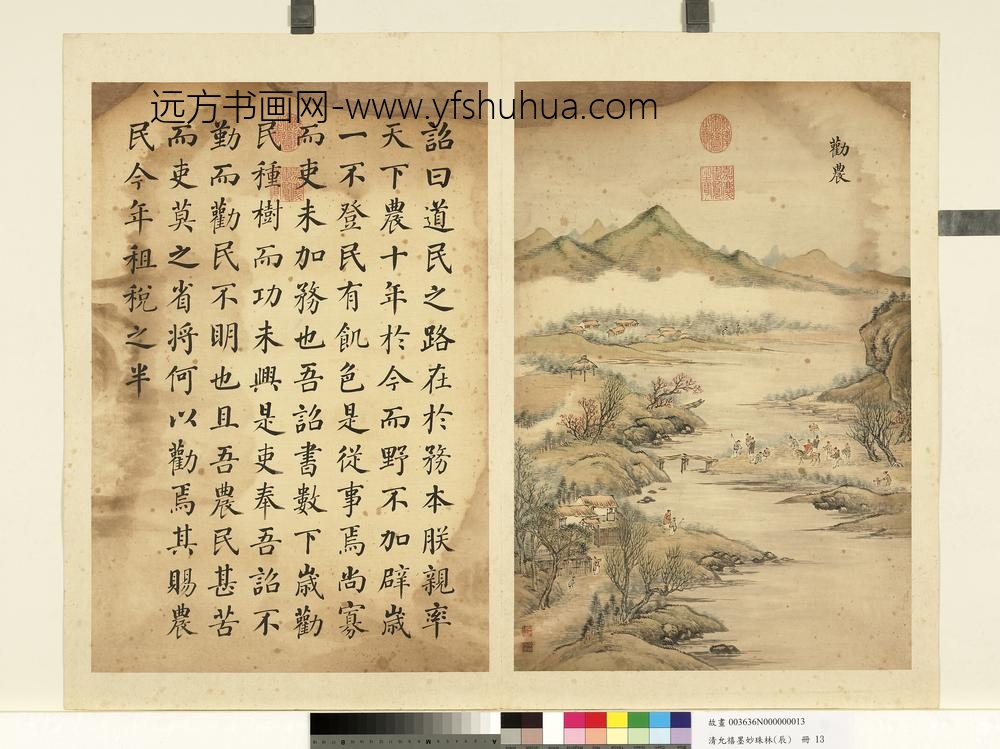 远方书画网-www.yfshuhua.com
勸農
詔曰道民之路在於務本朕親率
天下農十年於今而野不加辟歲
一不登民有飢色是從事焉尚寡
而吏未加務也吾詔書數下歲勸
民種樹而功未興是吏奉吾詔不
勤而勸民不明也且吾農民甚苦
而吏莫之省將何以勸焉其賜農
民今年租稅之半
故畫 003636N000000013
清允禧墨妙珠林(辰) 冊 13